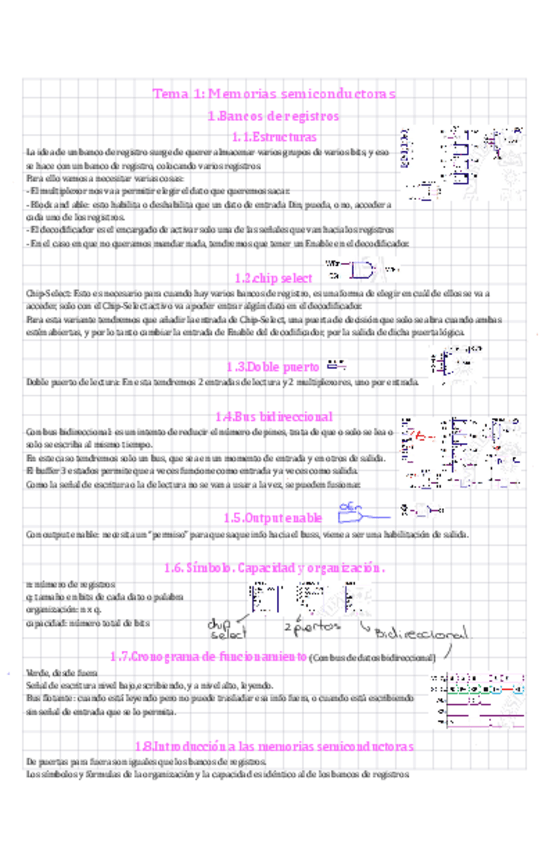 Tema 1: Memorias semiconductoras
1.Bancos de registros
1.1.Estructuras
La idea de un banco de registro surge de querer almacenar varios grupos de varios bits, y eso
se hace con un banco de registro, colocando varios registros.
Para ello vamos a necesitar varias cosas:
- El multiplexor nos va a permitir elegir el dato que queremos sacar.
- Block and able: esto habilita o deshabilita que un dato de entrada Din, pueda, o no, acceder a
cada uno de los registros.
- El decodificador es el encargado de activar solo una de las señales que van hacia los registros
- En el caso en que no queramos mandar nada, tendremos que tener un Enable en el decodificador.
1.2.chip select
Chip-Select: Esto es necesario para cuando hay varios bancos de registro, es una forma de elegir en cuál de ellos se va a
acceder, solo con el Chip-Select activo va a poder entrar algún dato en el decodificador.
Para esta variante tendremos que añadir la entrada de Chip-Select, una puerta de decisión que solo se abra cuando ambas
estén abiertas, y por lo tanto cambiar la entrada de Enable del decodificador, por la salida de dicha puerta lógica.
1.3.Doble puerto
Doble puerto de lectura: En esta tendremos 2 entradas de lectura y 2 multiplexores, uno por entrada.
1.4.Bus bidireccional
Con bus bidireccional: es un intento de reducir el número de pines, trata de que o solo se lea o
solo se escriba al mismo tiempo.
En este caso tendremos solo un bus, que sea en un momento de entrada y en otros de salida.
El buffer 3 estados permite que a veces funcione como entrada y a veces como salida.
Como la señal de escritura o la de lectura no se van a usar a la vez, se pueden fusionar.
1.5.Output enable
Con output enable: necesita un "permiso" para que saque info hacia el buss, viene a ser una habilitación de salida.
1.6. Símbolo. Capacidad y organización.
n: número de registros
q: tamaño en bits de cada dato o palabra
organización: n x q.
capacidad: número total de bits
chip
select
2 puertos
Bidireccional
1.7.Cronograma de funcionamiento (Con bus de datos bidireccional)
Verde, desde fuera
Señal de escritura nivel bajo,escribiendo, y a nivel alto, leyendo.
Bus flotante: cuando está leyendo pero no puede trasladar esa info fuera, o cuando está escribiendo
sin señal de entrada que se lo permita.
1.8.Introducción a las memorias semiconductoras
De puertas para fuera son iguales que los bancos de registros.
Los símbolos y fórmulas de la organización y la capacidad es idéntico al de los bancos de registros